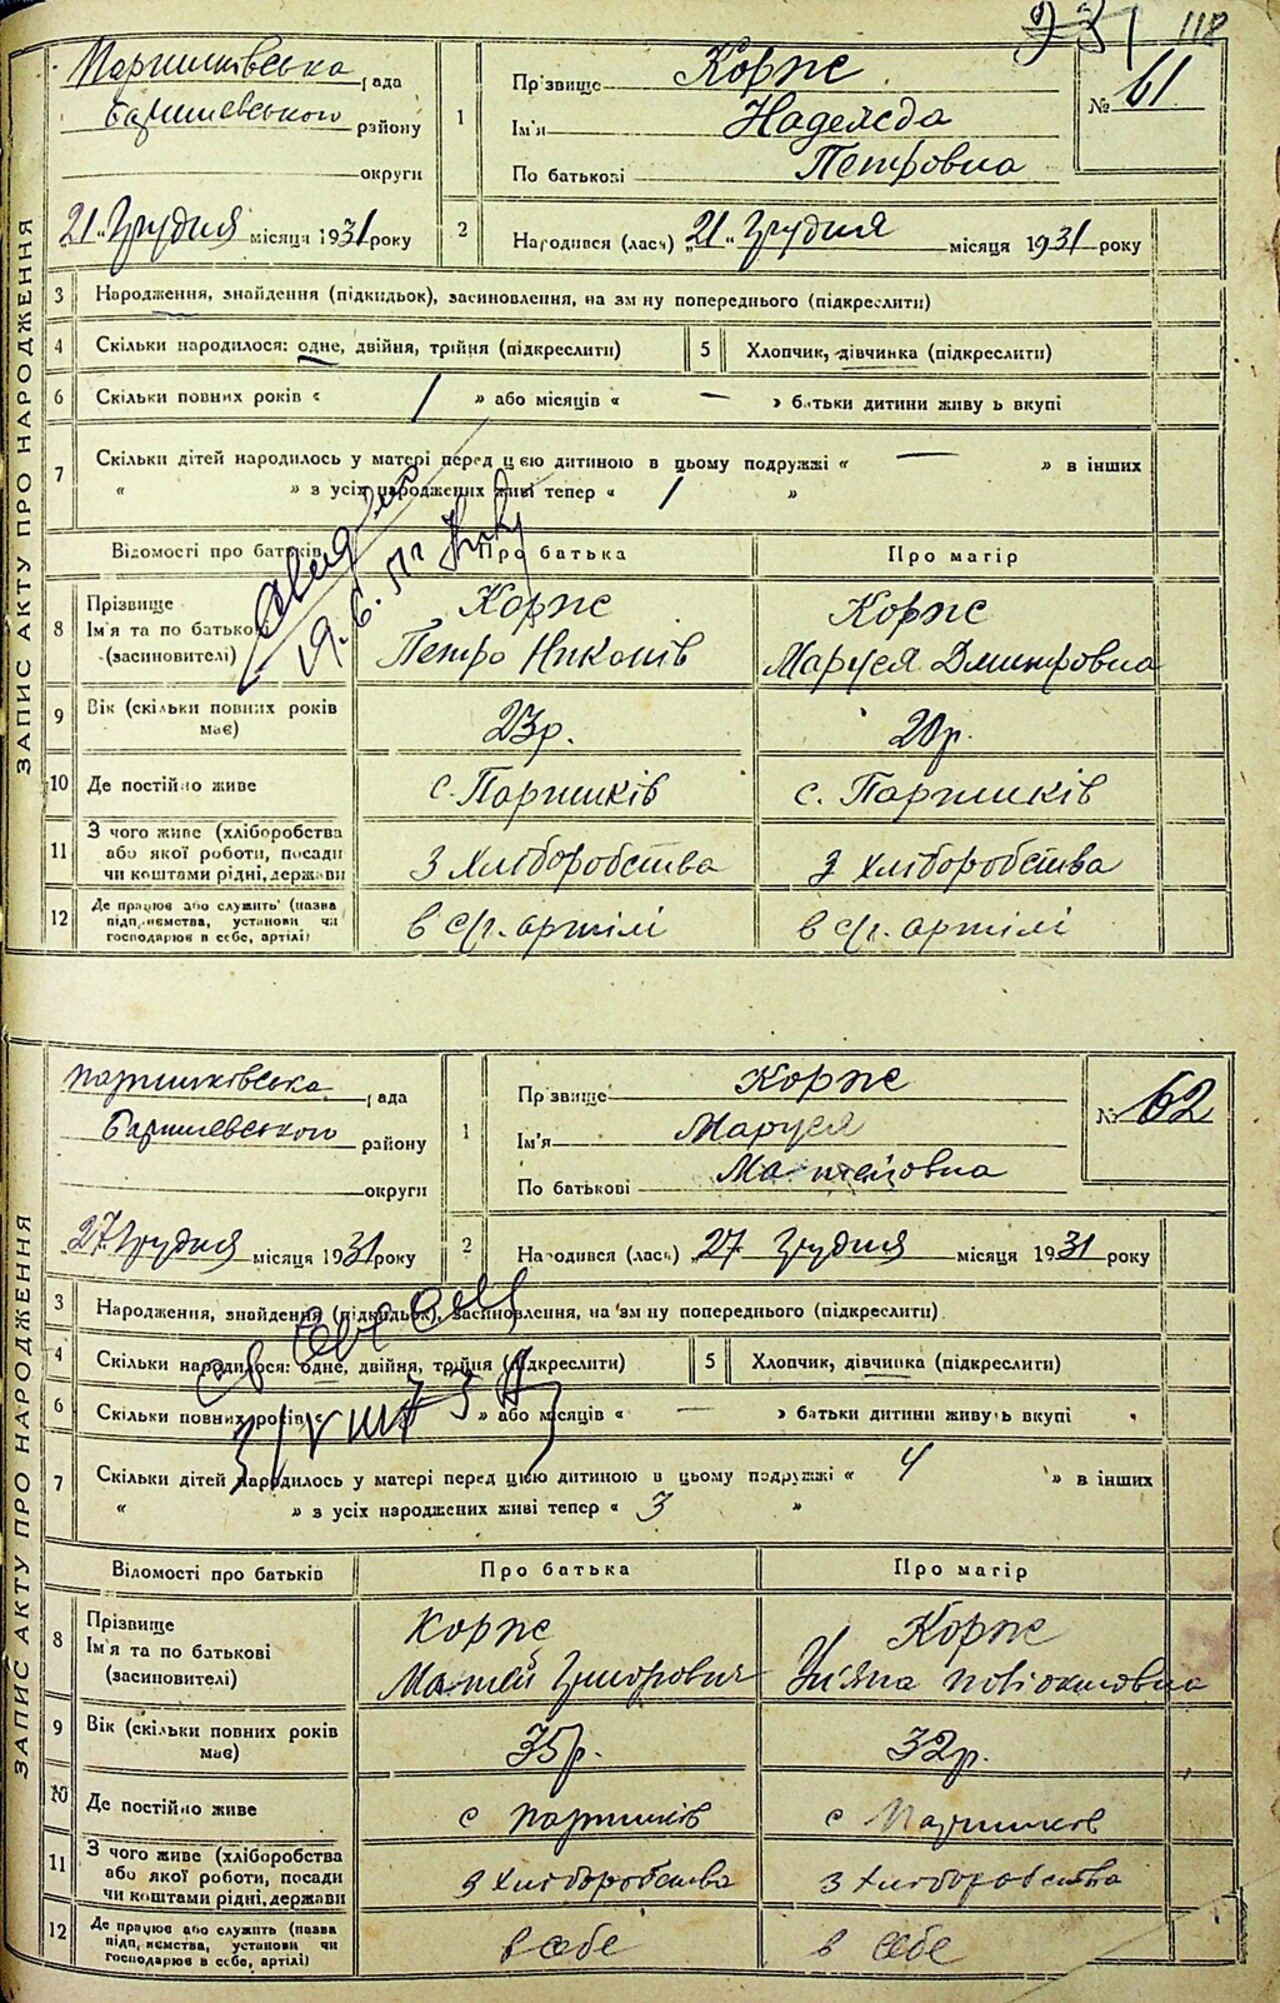 118
Паришківська рада
Баришевського району
округи
21 Грудня місяця 1931 року
1
Прізвище Корж
Ім'я Надежда
По батькові Петровна
№ 61
2
Народився (лась) „21" Грудня місяця 1931 року
ЗАПИС АКТУ ПРО НАРОДЖЕННЯ
3 Народження, знайдення (підкидьок), засиновлення, на зміну попереднього (підкреслити)
4 Скільки народилося: одне, двійня, трійня (підкреслити) 5 Хлопчик, дівчинка (підкреслити)
6 Скільки повних років « 1 » або місяців « — » батьки дитини живуть вкупі
7 Скільки дітей народилось у матері перед цією дитиною в цьому подружжі « — » в інших
« » з усіх народжених живі тепер « 1 »
19.6.51г
Відомості про батьків Про батька Про матір
8 Прізвище Корж Корж
Ім'я та по батькові Петро Никонів Маруся Дмитровна
(засиновителі)
9 Вік (скільки повних років має) 23р. 20р.
10 Де постійно живе с. Паришків с. Паришків
11 З чого живе (хліборобства
або якої роботи, посади З хліборобства З хліборобства
чи коштами рідні, держави
12 Де працює або служить (назва
підприємства, установи чи в с/г. артілі в с/г. артілі
господарює в себе, артілі)
Паришківська рада
Баришевського району
округи
27 Грудня місяця 1931 року
1
Прізвище Корж
Ім'я Маруся
По батькові Матвіївна
№ 62
2
Народився (лась) „27 Грудня місяця 1931 року
ЗАПИС АКТУ ПРО НАРОДЖЕННЯ
3 Народження, знайдення (підкидьок), засиновлення, на зміну попереднього (підкреслити)
4 Скільки народилося: одне, двійня, трійня (підкреслити) 5 Хлопчик, дівчинка (підкреслити)
6 Скільки повних років « » або місяців « — » батьки дитини живуть вкупі
7 Скільки дітей народилось у матері перед цією дитиною в цьому подружжі « 4 » в інших
« » з усіх народжених живі тепер « 3 »
Відомості про батьків Про батька Про матір
8 Прізвище Корж Корж
Ім'я та по батькові Матвій Григорович
(засиновителі)
9 Вік (скільки повних років має) 35р. 32р.
10 Де постійно живе с Паришків с Паришков
11 З чого живе (хліборобства
або якої роботи, посади З хліборобства З хліборобства
чи коштами рідні, держави
12 Де працює або служить (назва
підприємства, установи чи в себе в себе
господарює в себе, артілі)